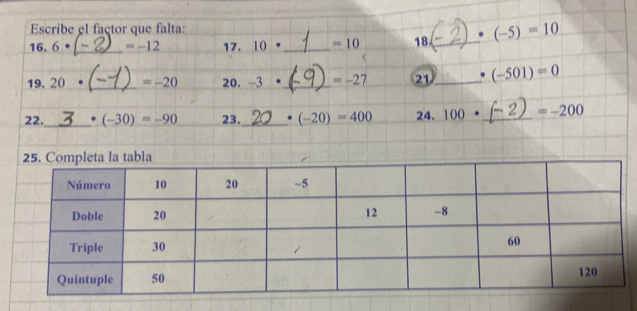 Escribe el factor que falta:
16. 6 • (-2) = -12 17. 10 • 1 = 10 18. (-2) • (-5) = 10
19. 20 • (-1) = -20 20. -3 • (-9) = -27 21. ____ • (-501) = 0
22. 3 • (-30) = -90 23. 20 • (-20) = 400 24. 100 • (-2) = -200
25. Completa la tabla
Número 10 20 -5
Doble 20 12 -8
Triple 30 60
Quintuple 50 120